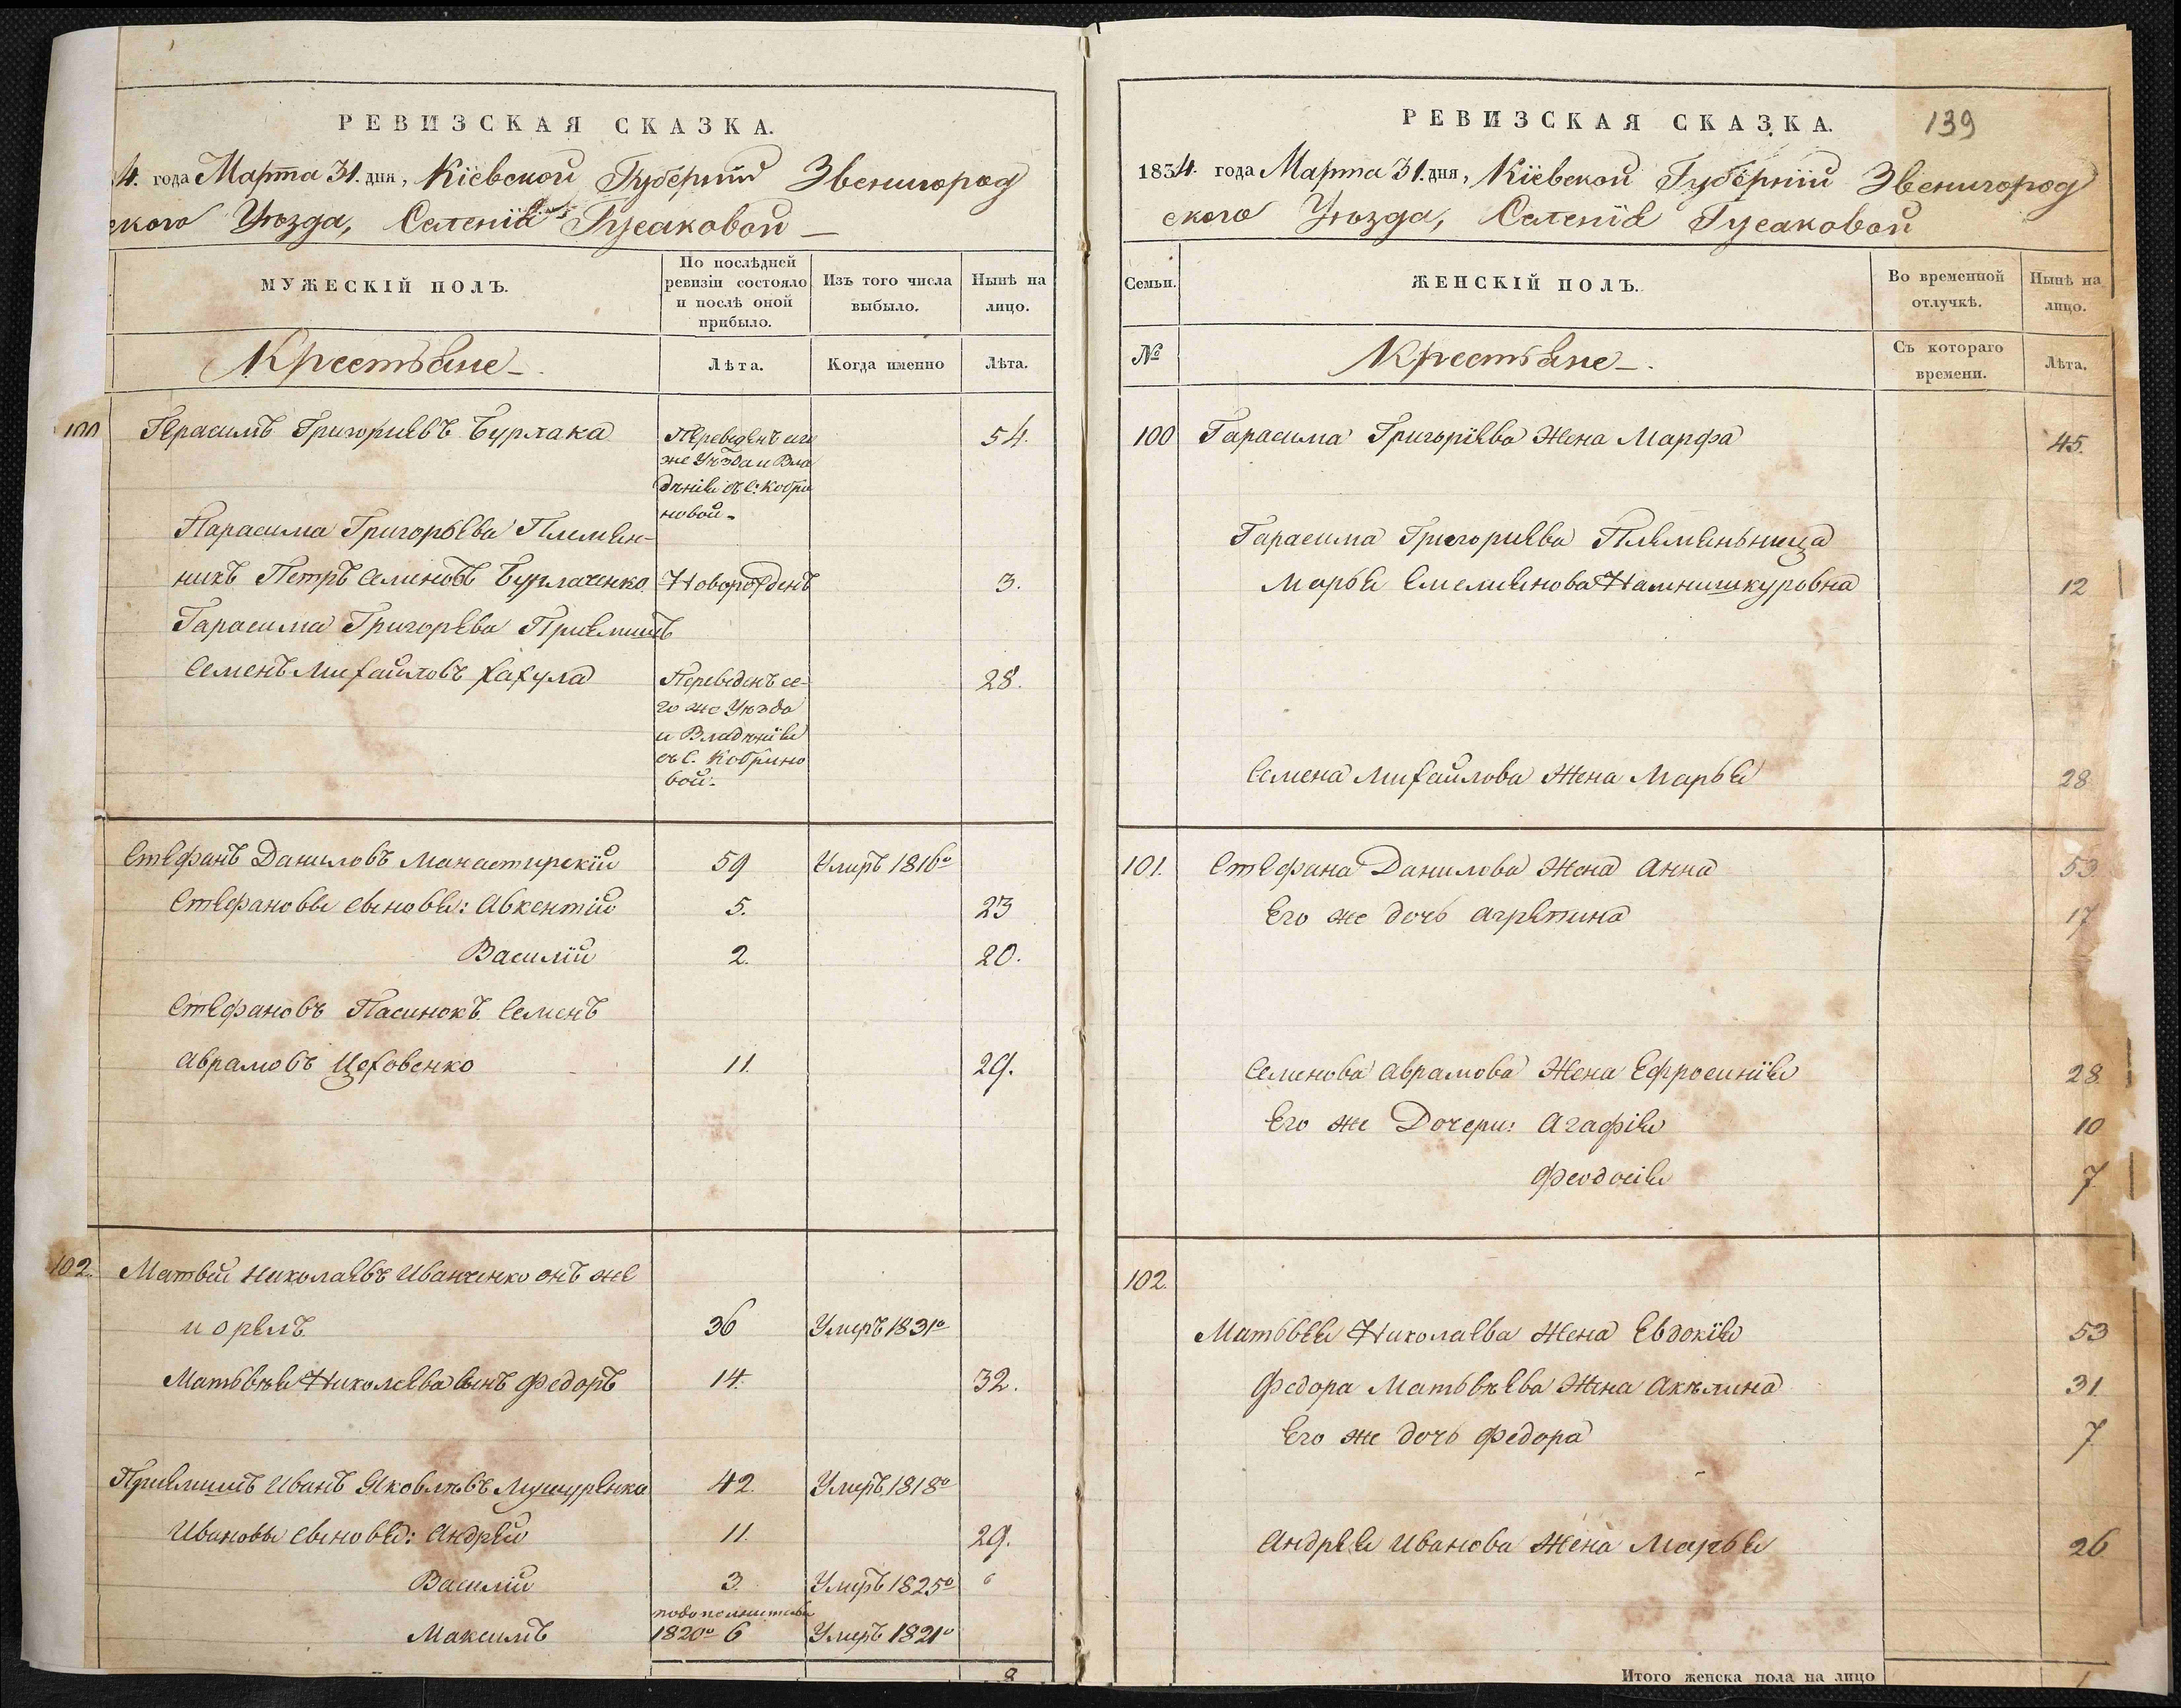 РЕВИЗСКАЯ СКАЗКА.
4. года Марта 31. дня, Кіевской Губерніи Звенигород
ского Уѣзда, Селенія Гусаковой
МУЖЕСКІЙ ПОЛЪ.
По послѣдней
ревизіи состояло
и послѣ оной
прибыло.
Изъ того числа
выбыло.
Нынѣ на
лицо.
Крестьяне
Лѣта.
Когда именно
Лѣта.
100 Герасимъ Григориевъ Бурлака 54.
Переведенъ сего
же Уѣзда и Вла
дѣнія съ с: Кобри
новой
Гарасима Григорьева Племен-
никъ Петръ Семеновъ Бурлаченко Новорожденъ 3.
Гарасима Григорева Приемишъ
Семенъ Михайловъ Хахула 28.
Переведенъ се-
го же Уѣзда
и Владѣнія
съ С. Кобрино
вой.
Стефанъ Даниловъ Манастирскій 59 Умеръ 1816го
Стефановы сыновья: Авкентій 5. 23
Василій 2. 20.
Стефановъ Пасинокъ Семенъ
Аврамовъ Цеховенко 11. 29.
102. Матвей Николаевъ Иванченко онъ же
и орелъ 36 Умеръ 1831го
Матьвѣя Николаева сынъ Федоръ 14. 32.
Приемишъ Иванъ Яковлѣвъ Мушуренко 42. Умеръ 1818го
Ивановы сыновья: Андрей 11. 29.
Василій 3. Умеръ 1825го
Максимъ 1820го 6 Умеръ 1821го
8
139
РЕВИЗСКАЯ СКАЗКА.
1834. года Марта 31. дня, Кіевской Губерніи Звенигород
ского Уѣзда, Селенія Гусаковой
Семьи.
ЖЕНСКІЙ ПОЛЪ.
Во временной
отлучкѣ.
Нынѣ на
лицо.
№
Крестьяне
Съ котораго
времени.
Лѣта.
100 Гарасима Григоріева Жена Марфа 45.
Гарасима Григориева Племеньница
Марья Емелиянова 12
Семена Михайлова Жена Марья 28
101. Стефана Данилова Жена Анна 53
Его же дочь Агрепина 17
Семенова Аврамова Жена Ефросинія 28
Его же Дочери: Агафія 10
Феодосія 7
102.
Матьвея Николаева Жена Евдокія 53
Федора Матьвѣева Жена Акѣлина 31
Его же дочь Федора 7
Андрея Иванова Жена Марья 26
Итого женска пола на лицо